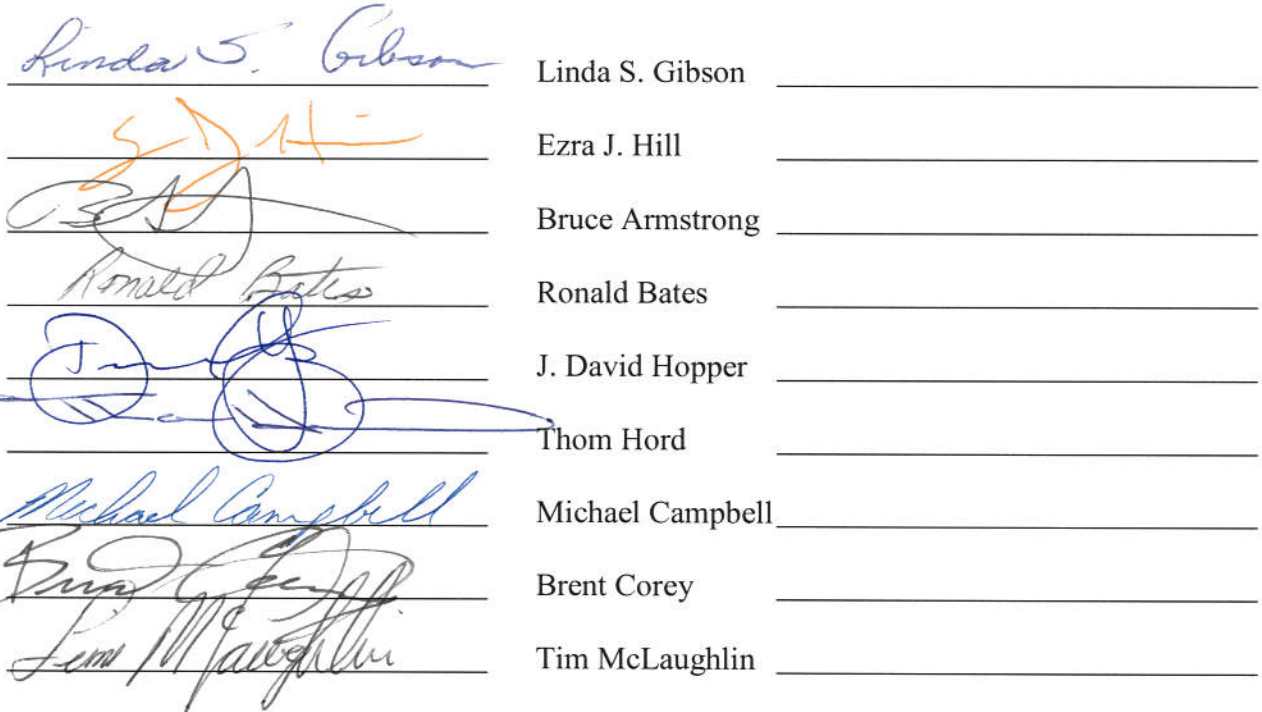 Linda S. Gibson Linda S. Gibson
Ezra J. Hill
Bruce Armstrong
Ronald Bates Ronald Bates
J. David Hopper
Thom Hord
Michael Campbell Michael Campbell
Brent Corey
Tim McLaughlin Tim McLaughlin